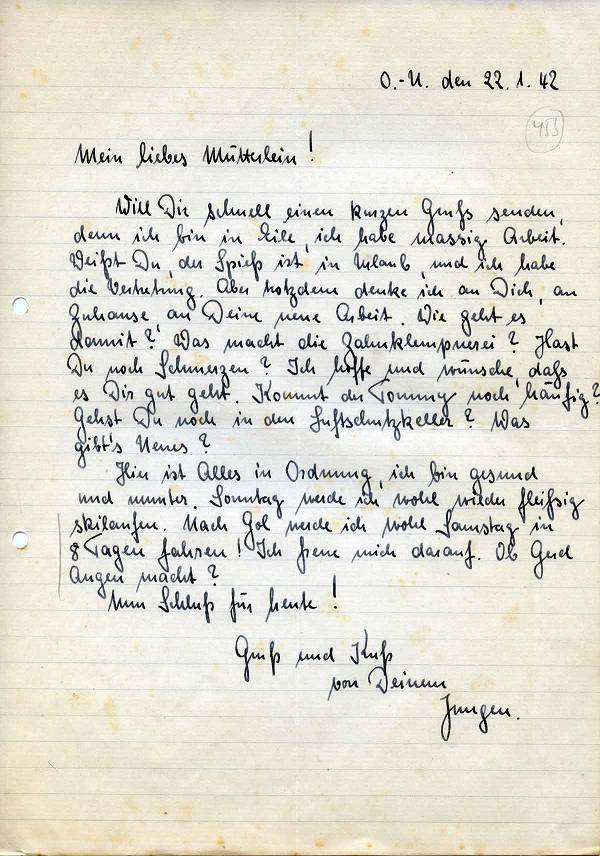 O.-U. den 22.1.42
485
Mein liebes Mütterlein!
Will Dir schnell einen kurzen Gruß senden,
denn ich bin in Eile, ich habe massig Arbeit.
Weißt Du, der Spieß ist in Urlaub, und ich habe
die Vertretung. Aber trotzdem denke ich an Dich, an
Zuhause, an Deine neue Arbeit. Wie geht es
damit? Was macht die Zahnklempnerei? Hast
Du noch Schmerzen? Ich hoffe und wünsche, daß
es Dir gut geht. Kommt der Tommy noch häufig?
Gehst Du noch in den Luftschutzkeller? Was
gibt's Neues?
Hier ist Alles in Ordnung, ich bin gesund
und munter. Sonntag werde ich wohl wieder fleißig
skilaufen. Nach Gol werde ich wohl Samstag in
8 Tagen fahren! Ich freue mich darauf. Ob Gerd
Augen macht?
Nun Schluß für heute!
Gruß und Kuß
von Deinem
Jungen.